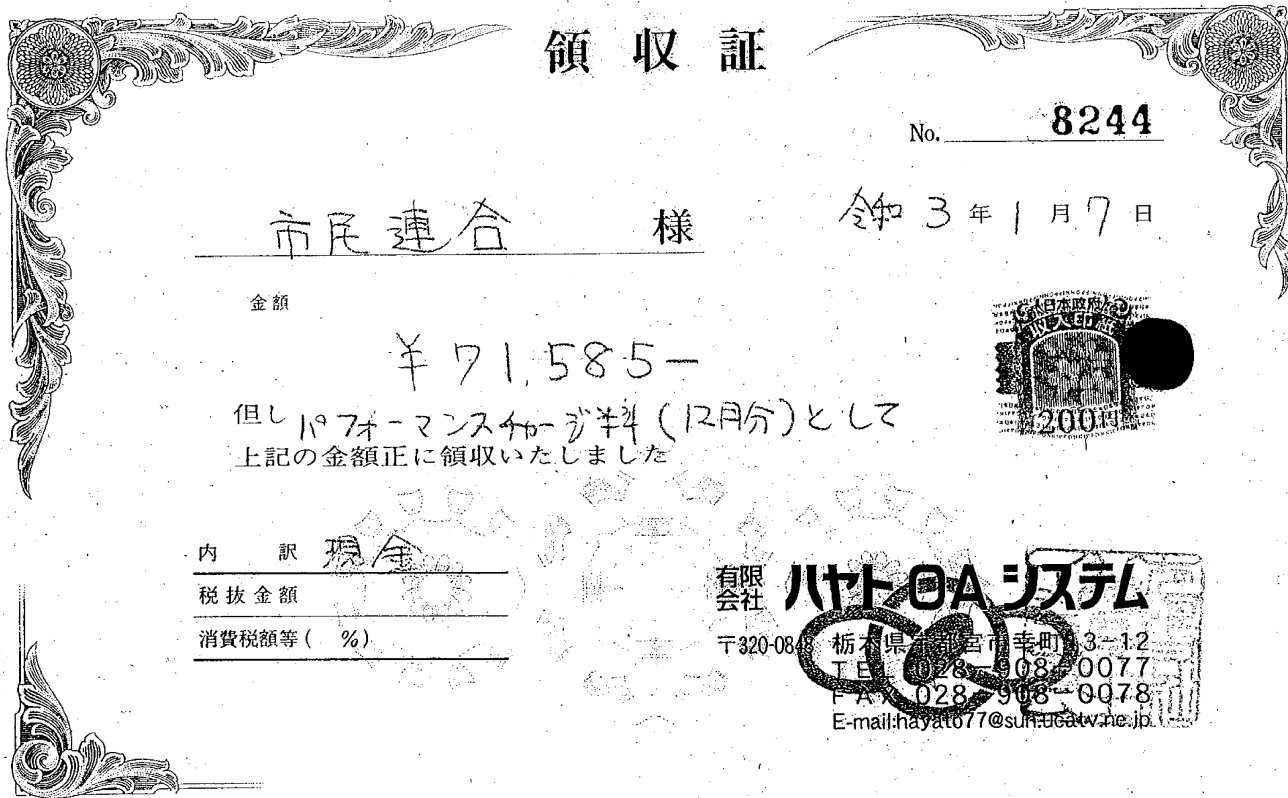 領収証
No. 8244
市民連合 様
令和 3 年 1 月 7 日
金額
¥71,585-
日本政府
収入印紙
200円
但し パフォーマンスチャージ料 (12月分) として
上記の金額正に領収いたしました
内 訳 現金
税抜金額
消費税額等( %)
有限会社 ハヤトOAシステム
〒320-0848 栃木県宇都宮市幸町13-12
TEL 028-908-0077
FAX 028-908-0078
E-mail:hayato77@sun.ucatv.ne.jp